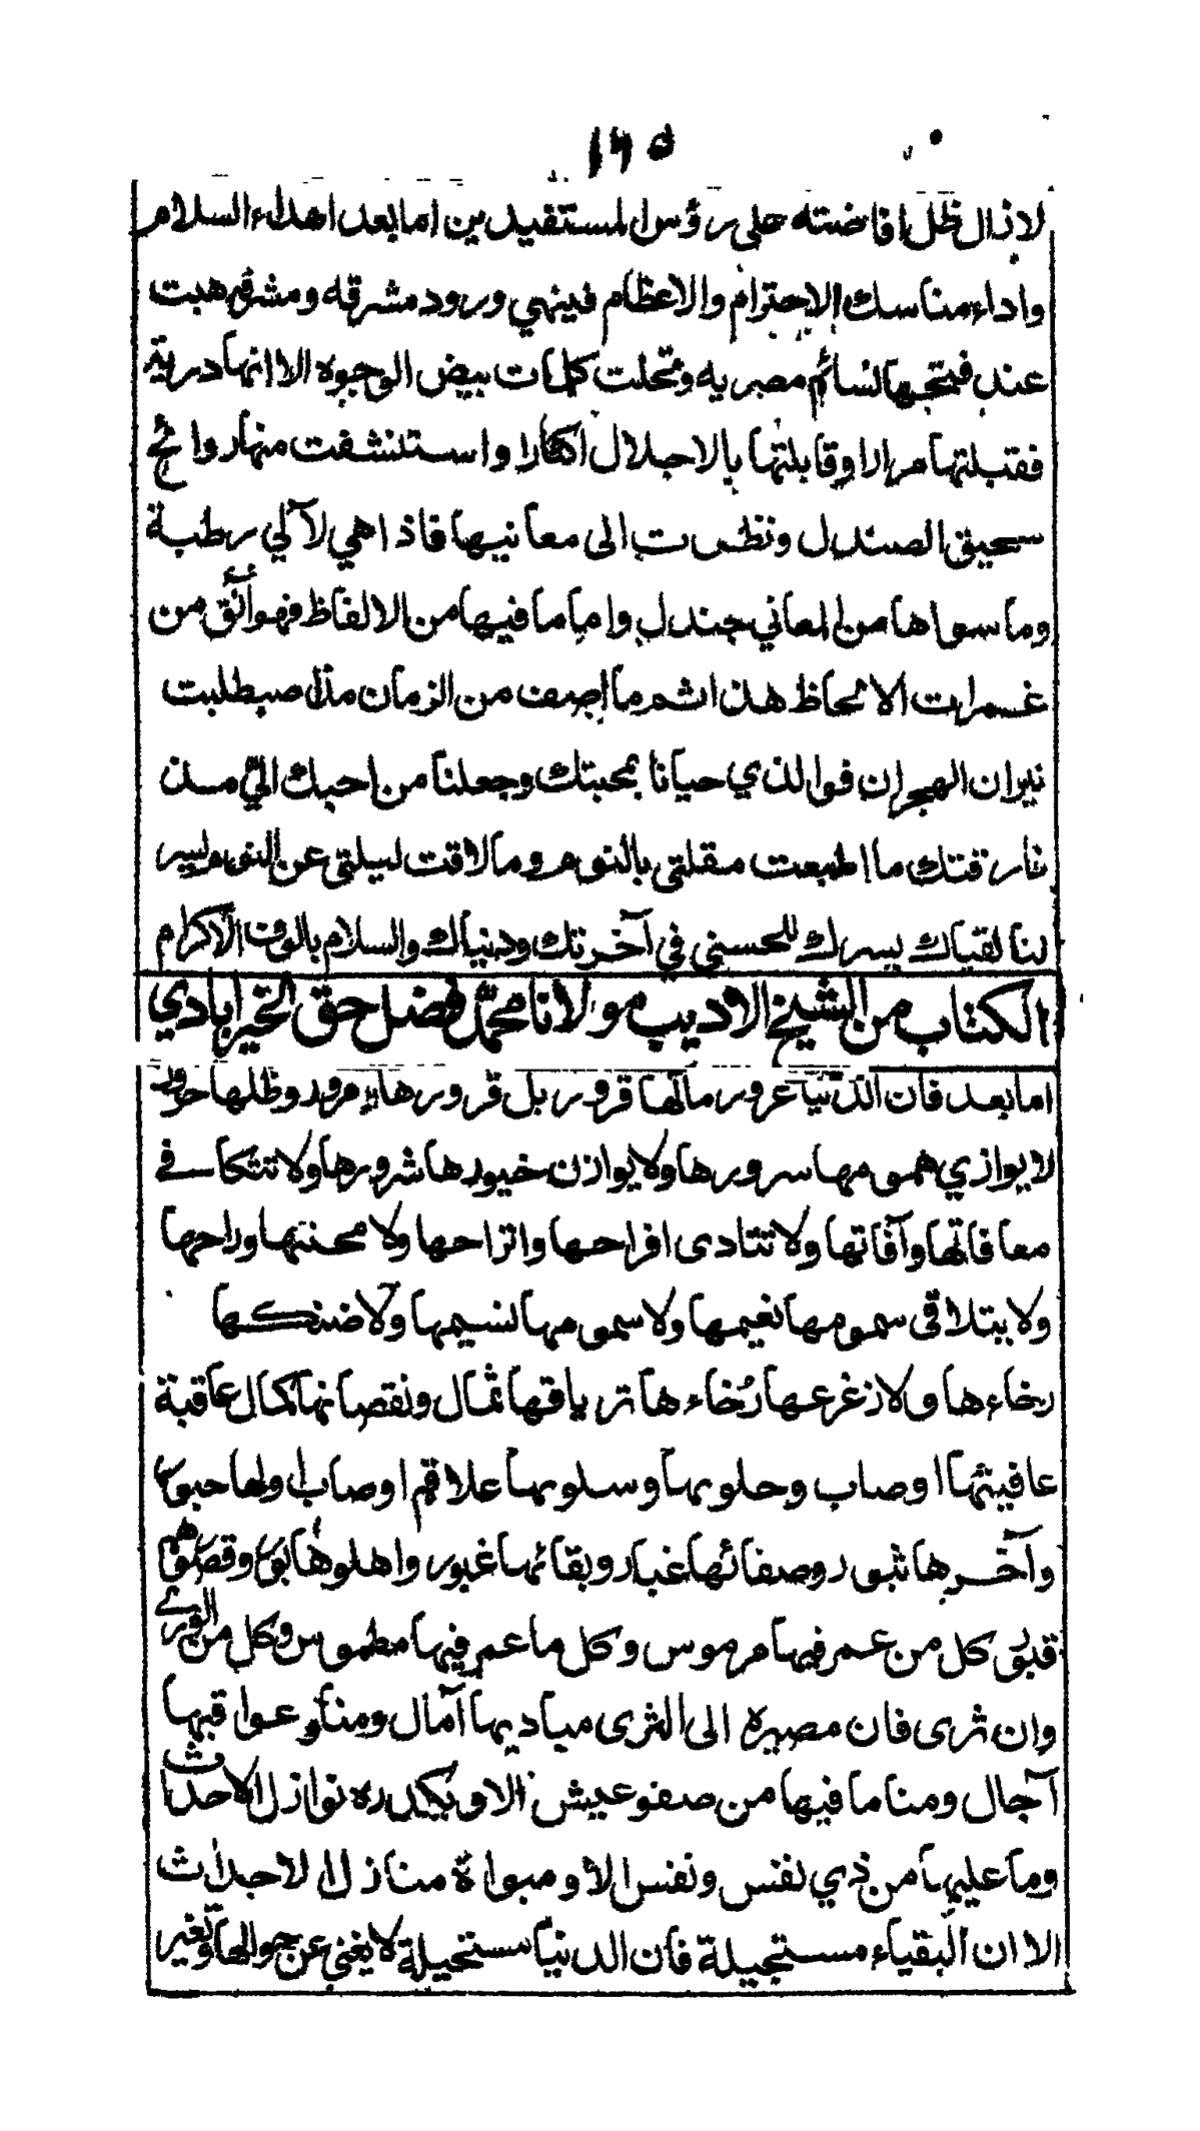 ١٦٥
لازال ظل افاضته على رؤس المستفيدين اما بعد اهداء السلام
واداء مناسك الاحترام والاعظام فينهي ورود مشرقه ومشرفه هبت
عند نسائم مصريه وتحلت كلمات بيض الوجوه الا انها درية
فقبلتها مرارا وقابلتها بالاجلال اكثارا واستنشقت منها روائح
سحيق الصندل ونظرت الى معانيها فاذا هي لآلي رطبة
وما سواها من المعاني جندل واما ما فيها من الالفاظ فهو آنق من
غمرات الالحاظ هذا ثم ما اصف من الزمان منذ صبطلبت
نيران الهجران فوالذي حيانا بمحبتك وجعلنا من احبك الي مذ
فارقتك ما اطبعت مقلتي بالنوم وما لاقت ليلتي عن اليوم يسر
لنا لقياك يسرك للحسنى في آخرتك ودنياك والسلام بالوف الاكرام
الكتاب من الشيخ الاديب مولانا محمد فضل حق الخيرابادي
اما بعد فان الدنيا غرور مالها قرور بل قرورها مرور وظلها حرور
لا يوازي همومها سرورها ولا يوازن خيورها شرورها ولا تتكافى
معافاتها وآفاتها ولا تتادى افراحها واتراحها ولا محنتها وراحها
ولا يتلاقى سمومها نعيمها ولا سمومها نسيمها ولا ضنكها
رخاءها ولا زغرعها رخاءها ترياقها ثمال ونقصانها كمال عاقبة
عافيتها اوصاب وحلوها وسلوها علاقم اوصاب اولها حبور
وآخرها ثبور وصفائها غبار وبقائها غبور واهلوها بور وقصورهم
قبور كل من عمر فيها مرموس وكل ما عمر فيها مطموس وكل من الورى
وان ثرى فان مصيره الى الثرى مباديها آمال ومنا وعواقبها
آجال ومنا ما فيها من صفو عيش الا ويكدره نوازل الاحداث
وما عليها من ذي نفس ونفس الا ومبواه منازل الاجداث
الا ان البقياء مستحيلة فان الدنيا مستحيلة لا يغني عن حوالها وتغير